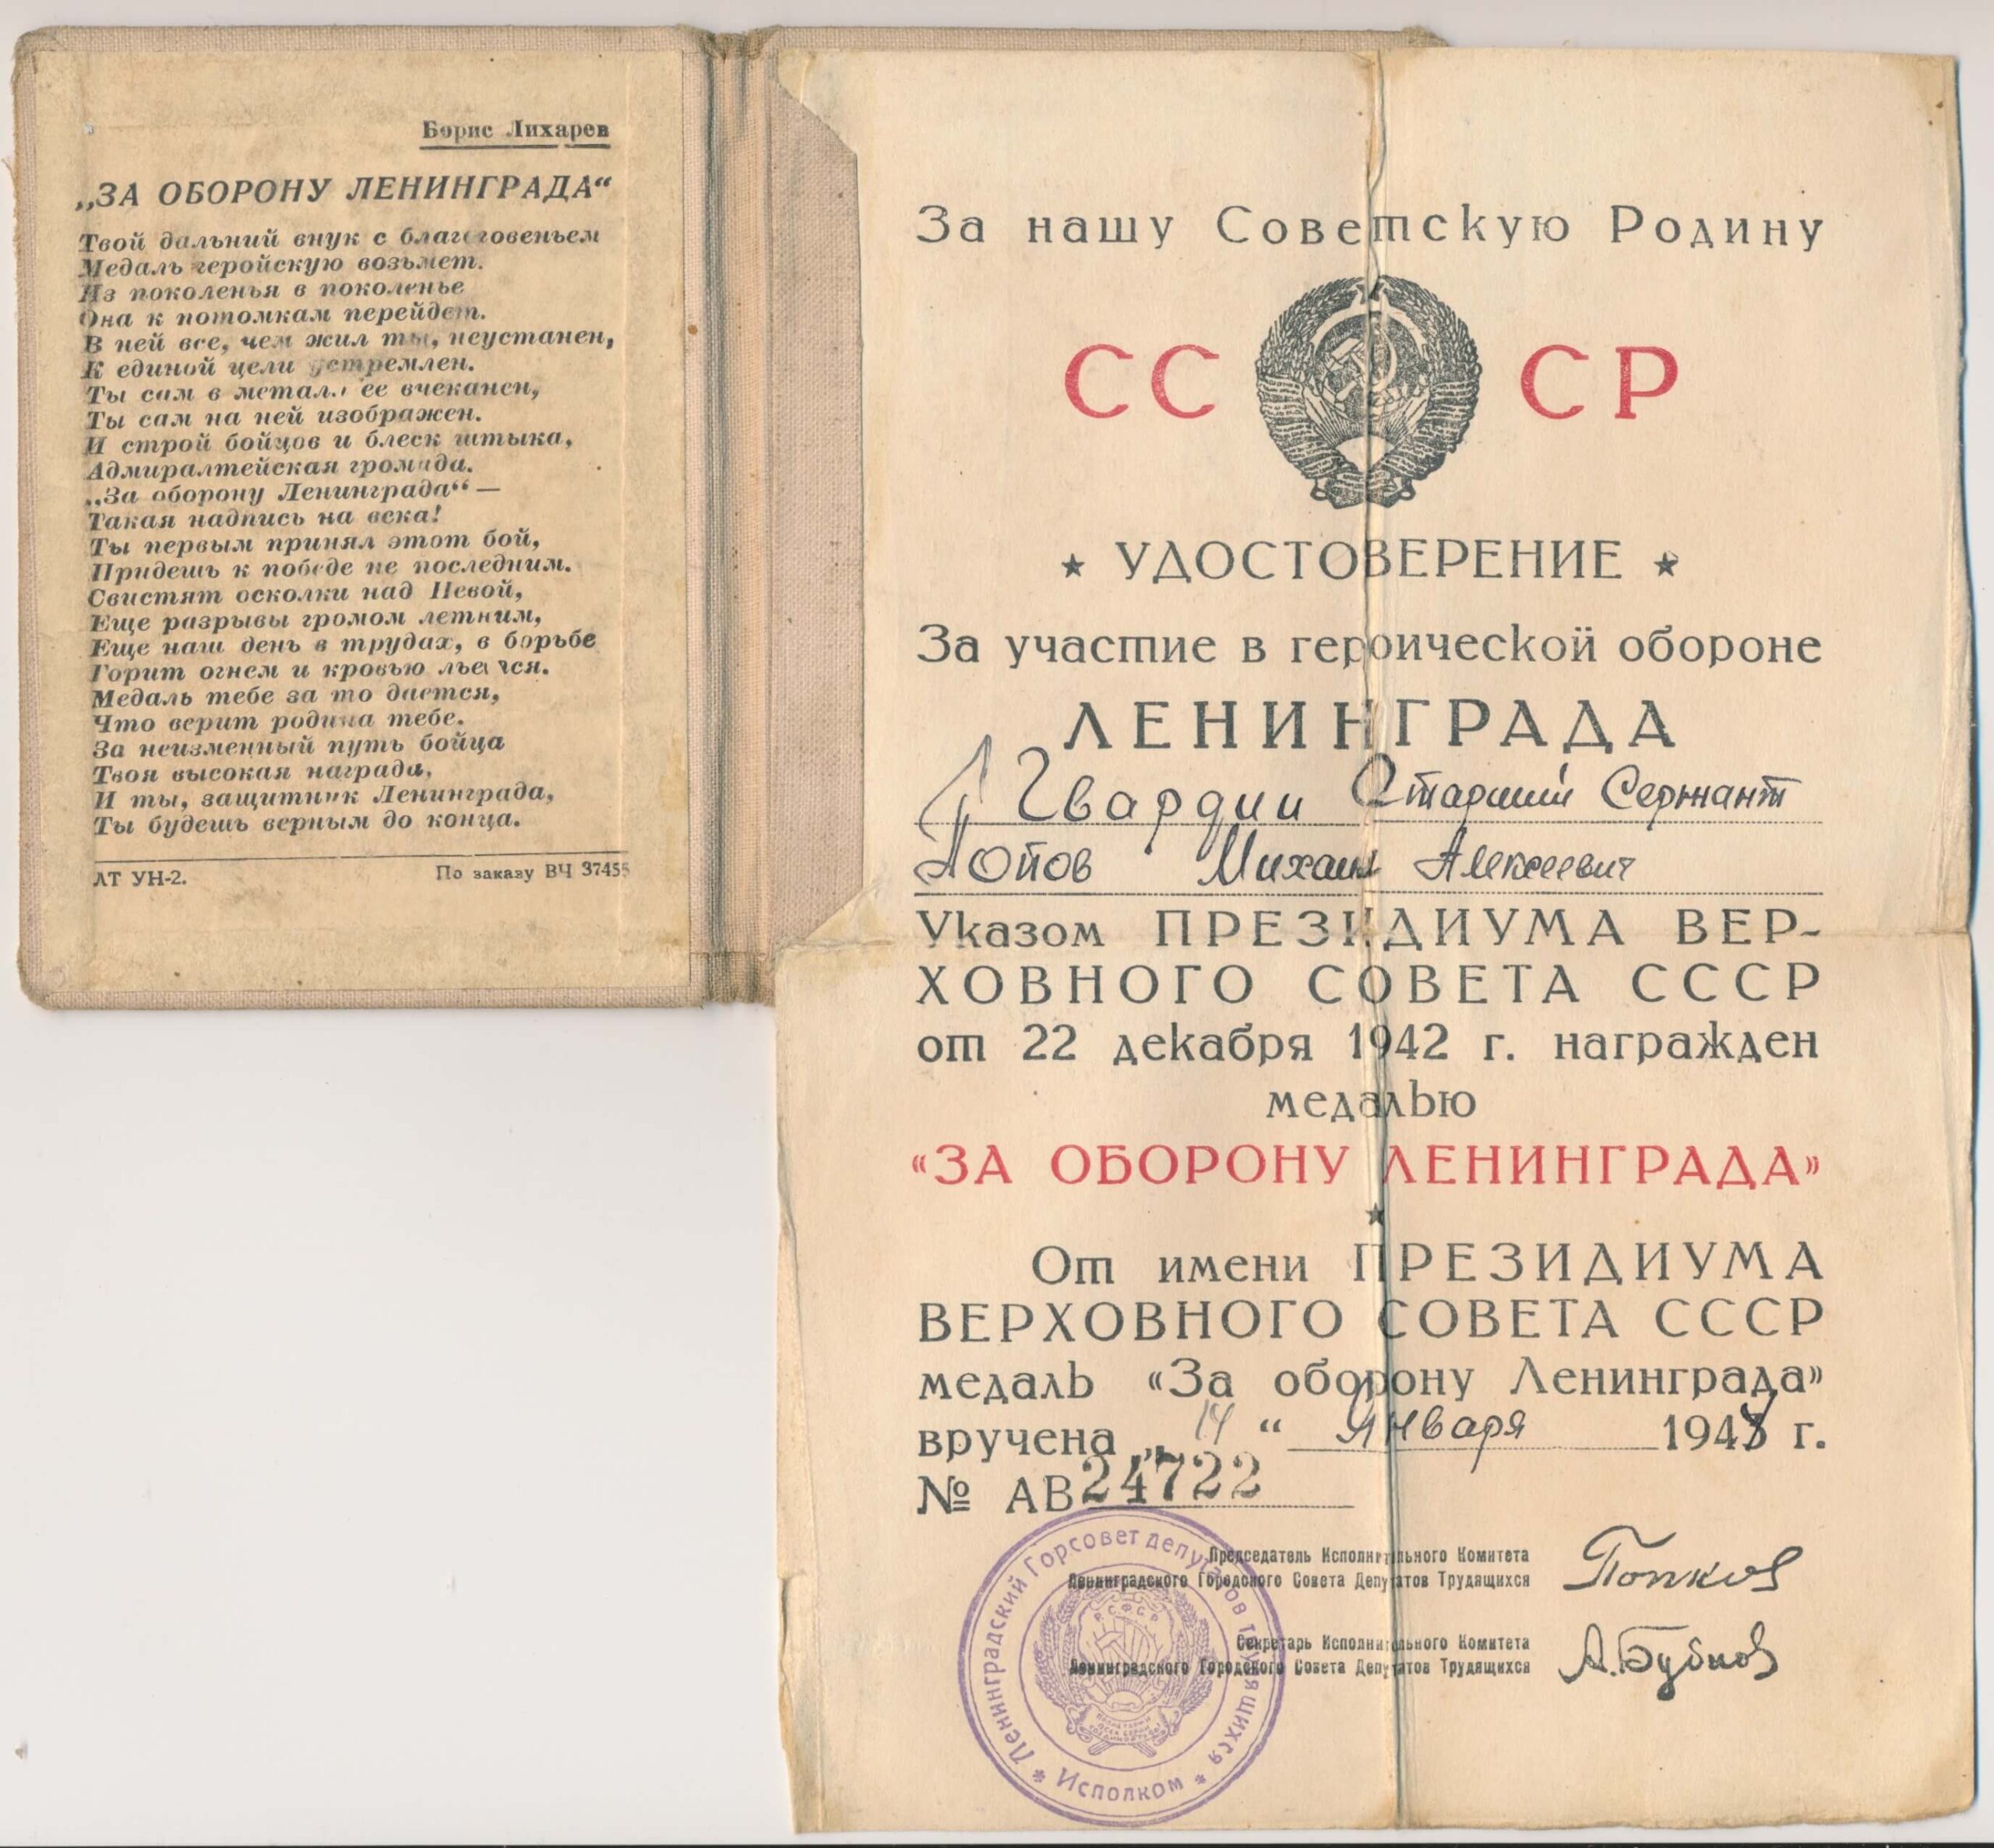 Борис Лихарев
„ЗА ОБОРОНУ ЛЕНИНГРАДА“
Твой дальний внук с благоговеньем
Медаль геройскую возьмет.
Из поколенья в поколенье
Она к потомкам перейдет.
В ней все, чем жил ты, неустанен,
К единой цели устремлен.
Ты сам в металл ее вчеканен,
Ты сам на ней изображен.
И строй бойцов и блеск штыка,
Адмиралтейская громада.
„За оборону Ленинграда“ —
Такая надпись на века!
Ты первым принял этот бой,
Придешь к победе не последним.
Свистят осколки над Невой,
Еще разрывы громом летним,
Еще наш день в трудах, в борьбе
Горит огнем и кровью льется.
Медаль тебе за то дается,
Что верит родина тебе.
За неизменный путь бойца
Твоя высокая награда,
И ты, защитник Ленинграда,
Ты будешь верным до конца.
ЛТ УН-2. По заказу ВЧ 37455
За нашу Советскую Родину
СС СР
★ УДОСТОВЕРЕНИЕ ★
За участие в героической обороне
ЛЕНИНГРАДА
Гвардии Старший Сержант
Попов Михаил Алексеевич
Указом ПРЕЗИДИУМА ВЕР-
ХОВНОГО СОВЕТА СССР
от 22 декабря 1942 г. награжден
медалью
«ЗА ОБОРОНУ ЛЕНИНГРАДА»
★
От имени ПРЕЗИДИУМА
ВЕРХОВНОГО СОВЕТА СССР
медаль «За оборону Ленинграда»
вручена „14“ Января 194 г.
№ АВ 24722
Председатель Исполнительного Комитета
Ленинградского Городского Совета Депутатов Трудящихся
Попков
Секретарь Исполнительного Комитета
Ленинградского Городского Совета Депутатов Трудящихся
А. Бубнов
Ленинградский Горсовет депутатов трудящихся
* Исполком *
РСФСР